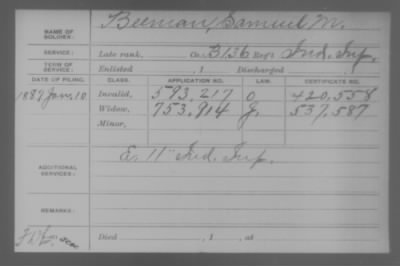 NAME OF SOLDIER: Beeman, Samuel M.
SERVICE: Late rank, Co. B, 36 Reg't Ind. Inf.
TERM OF SERVICE: Enlisted , 1 Discharged , 1
DATE OF FILING. CLASS. APPLICATION NO. LAW. CERTIFICATE NO.
1887 Jan. 10 Invalid, 593,217 O 420,558
Widow, 753,914 J. 537,587
Minor,
ADDITIONAL SERVICES: E. 11" Ind. Inf.
REMARKS:
Died , 1 , at